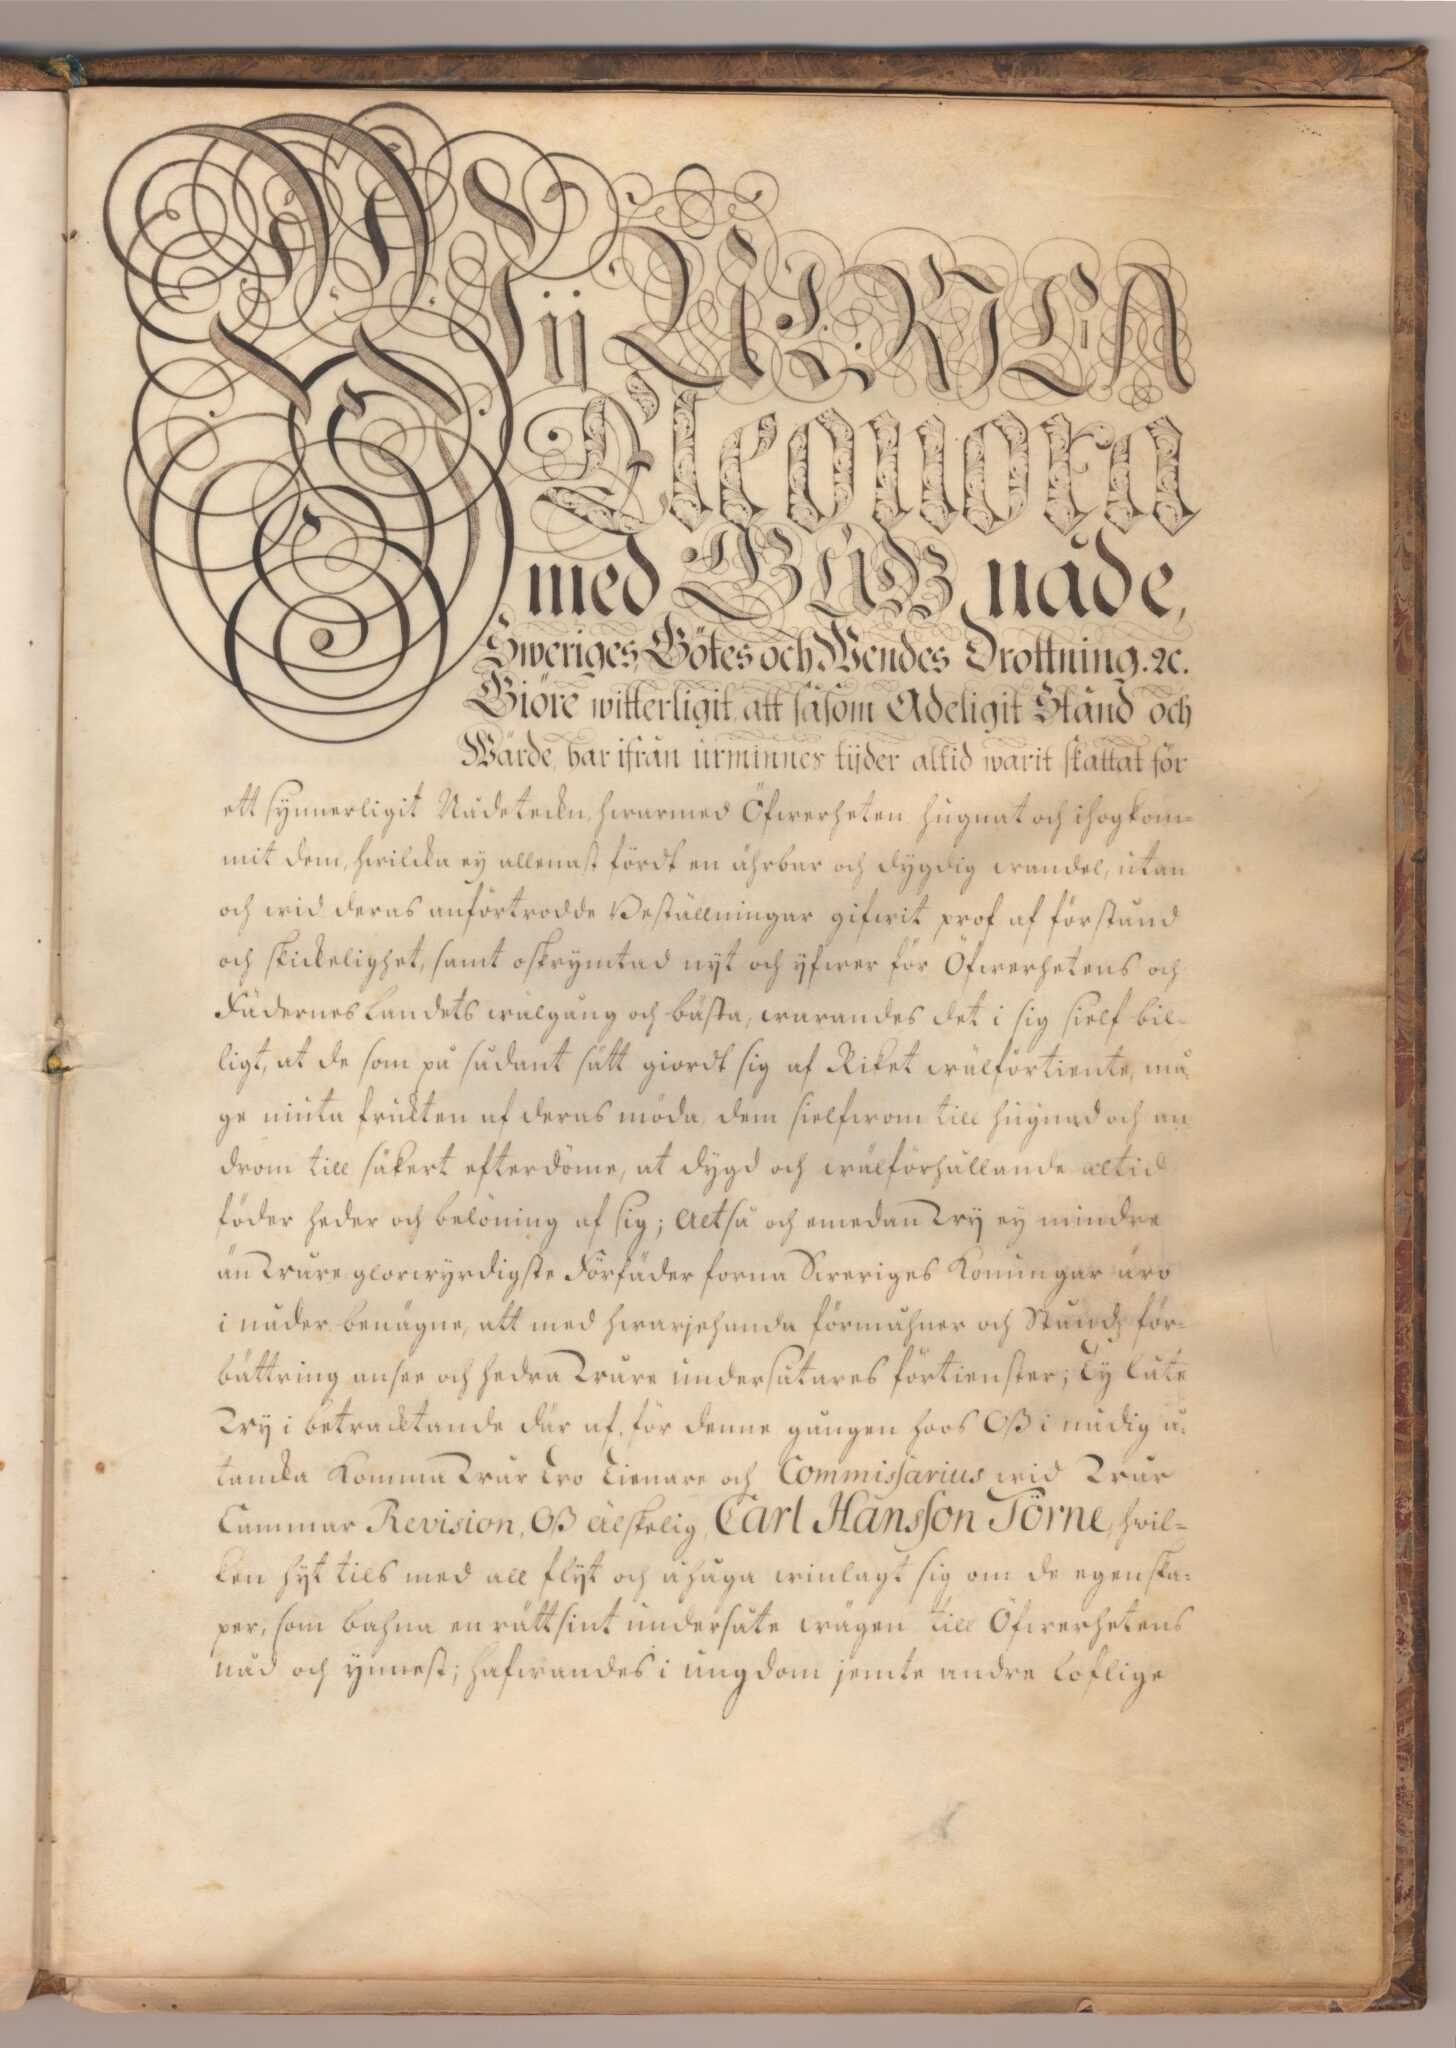 Wij ULRICA
Eleonora
med Gudz nåde,
Sweriges, Götes och Wendes Drottning. ꝛc.
Giöre witterligit, att såsom Adeligit Stånd och
Wärde, har ifrån urminnes tijder altid warit skattat för
ett synnerligit Nådeteckn, hwarmed Öfwerheten hugnat och ihogkom=
mit dem, hwilcka ey allenast fördt en ährbar och dygdig wandel, utan
och wid deras anförtrodde Beställningar gifwit prof af förstånd
och skickelighet, samt oskrymtad nyt och yfwer för Öfwerhetens och
Fädernes Landets wälgång och bästa, warandes det i sig sielf bil=
ligt, at de som på sådant sätt giordt sig af Riket wälförtiente, må=
ge niuta frukten af deras möda, dem sielfwom till hugnad och an
drom till säkert efterdöme, at dygd och wälförhållande altid
föder heder och belöning af sig; Altså och emedan Wy ey mindre
än Wåre glorwyrdigste Förfäder forna Sweriges Konungar äro
i nåder benägne, att med hwarjehanda förmåhner och Ståndz för=
bättring ansee och hedra Wåre undersåtares förtienster; Ty låte
Wy i betracktande där af, för denne gången hoos Oß i nådig å=
tancka komma Wår Tro Tienare och Commissarius wid Wår
Cammar Revision, Oß älskelig, Carl Hansson Törne, hwil=
ken hijt tils med all flijt och åhuga winlagt sig om de egenska=
per, som bahna en rättsint undersåte wägen till Öfwerhetens
nåd och ynnest; hafwandes i ungdom jemte andre loflige